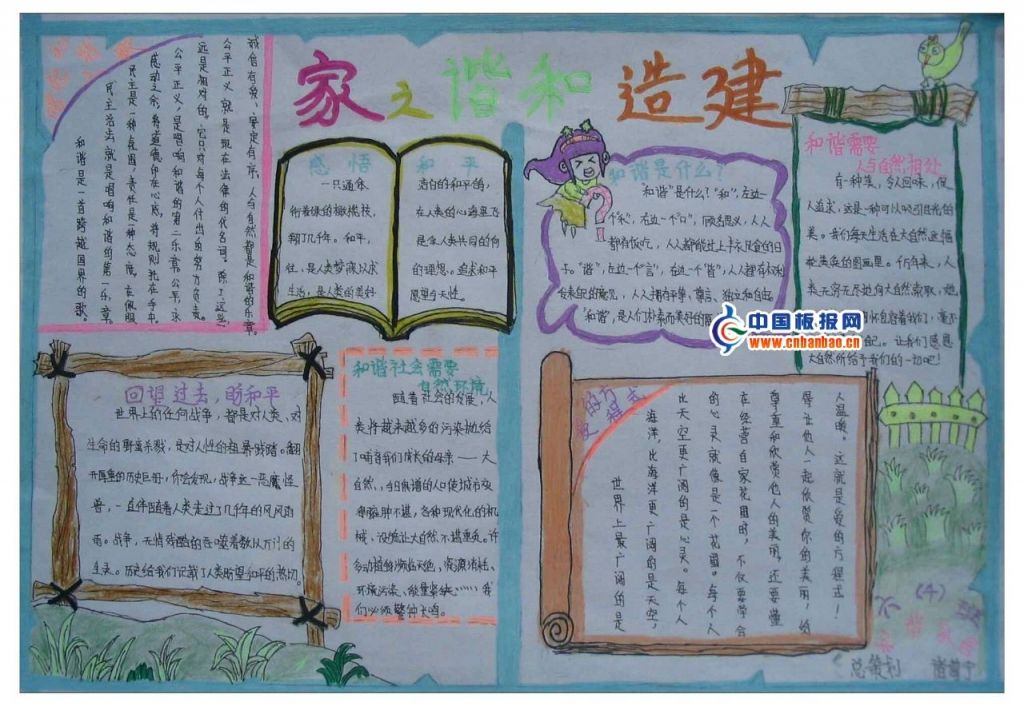 家之谐和造建
诚信有爱、安定有序、人与自然都是和谐的乐章。
公平正义就是现在法律的代名词。除了这些,
远是相对的。它只对每个人付出的努力负责。
公平正义,是唱响和谐的第二乐章。公平,永
感动之余,将道德印在心底,将规则扎在手中。
民主是一种氛围,责任是一种态度。在佩服
民主法治就是唱响和谐的第一乐章。
和谐是一首跨越国界的歌。
感悟和平
一只通体
洁白的和平鸽,
衔着绿的橄榄枝,
在人类的心海里飞
翔了几千年。和平,
是全人类共同的向
往,是人类梦寐以求
的理想。追求和平
生活,是人类的美好
愿望与天性。
和谐是什么?
"和谐"是什么?"和",左边一
个"禾",右边一个"口",顾名思义,人人
都有饭吃,人人都能过上丰衣足食的日
子。"谐",左边一个"言",右边一个"皆",人人
人人拥有平等、尊言、独立和自由
"和谐",是人们朴素而美好的愿
和谐需要
人与自然相处
有一种美,令人回味,使
人追求,这是一种可以吸引目光的
美。我们每天生活在大自然这幅
美的图画里。千百年来,人
类无穷无尽地向大自然索取,她
怀包容着我们,毫不
让我们感恩
大自然所给予我们的一切吧!
中国板报网
www.cnbanbao.cn
回望过去,盼和平
世界上的任何战争,都是对人类、对
生命的野蛮杀戮,是对人性的粗暴践踏。翻
开厚重的历史巨册,你会发现,战争这一恶魔怪
兽,一直伴随着人类走过了几千年的风风雨
雨。战争,无情残酷的吞噬着数以万计的
生灵。历史给我们记载了人类盼望和平的热切。
和谐社会需要
自然环境
随着社会的发展,人
类将越来越多的污染抛给
了哺育我们成长的母亲——大
自然,与日俱增的人口使城市变
得臃肿不堪,各种现代化的机
械、设施让大自然不堪重负。许
多动植物濒临灭绝,资源消耗、
环境污染、能量紧缺……我
们必须警钟长鸣。
爱的方程式
人温暖。这就是爱的方程式!
得让他人一起欣赏你的美丽,给
尊重和欣赏他人的美丽,还要懂
在经营自家花圃时,不仅要学会
的心灵就像是一个花圃。每个人
比天空更广阔的是心灵。每个人
海洋,比海洋更广阔的是天空,
世界上最广阔的是
六(4)班
总策划